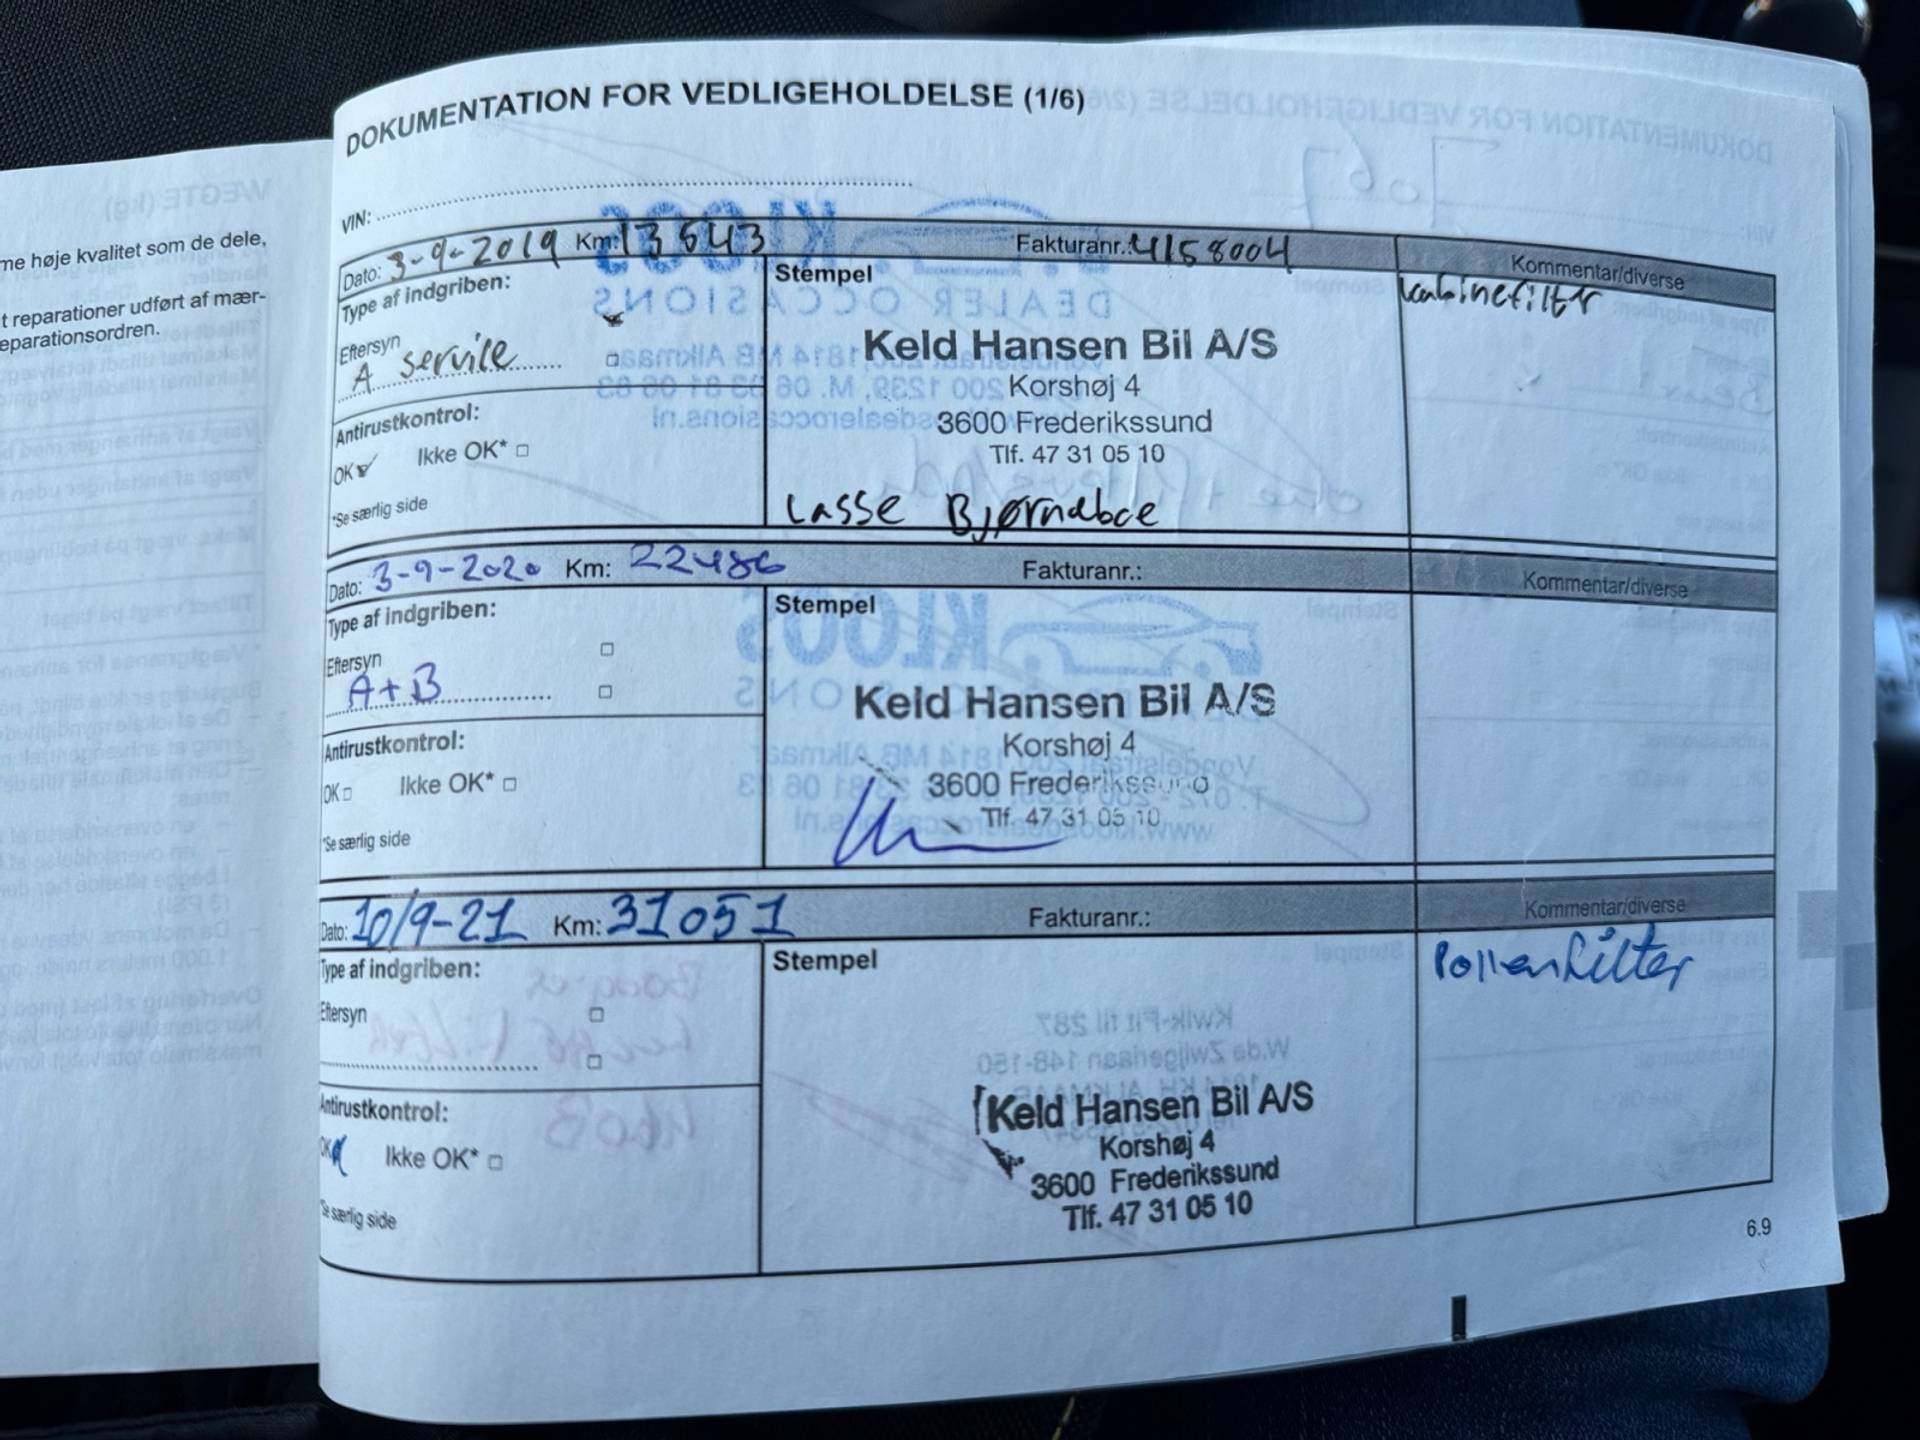 me høje kvalitet som de dele,
t reparationer udført af mær-
eparationsordren.
DOKUMENTATION FOR VEDLIGEHOLDELSE (1/6)
VIN:
Dato: 3-9-2019 Km: 13543 Fakturanr.: 4158004 Kommentar/diverse
Type af indgriben:
Stempel
kabinefilter
Eftersyn
A service
Keld Hansen Bil A/S
Korshøj 4
3600 Frederikssund
Tlf. 47 31 05 10
Antirustkontrol:
OK Ikke OK*
*Se særlig side
Lasse Bjørnaboe
Dato: 3-9-2020 Km: 22486 Fakturanr.: Kommentar/diverse
Type af indgriben:
Stempel
Eftersyn
A+B
Keld Hansen Bil A/S
Korshøj 4
3600 Frederikssund
Tlf. 47 31 05 10
Antirustkontrol:
OK Ikke OK*
*Se særlig side
Dato: 10/9-21 Km: 31051 Fakturanr.: Kommentar/diverse
Type af indgriben:
Stempel
Pollenfilter
Eftersyn
Antirustkontrol:
OK Ikke OK*
*Se særlig side
Keld Hansen Bil A/S
Korshøj 4
3600 Frederikssund
Tlf. 47 31 05 10
6.9